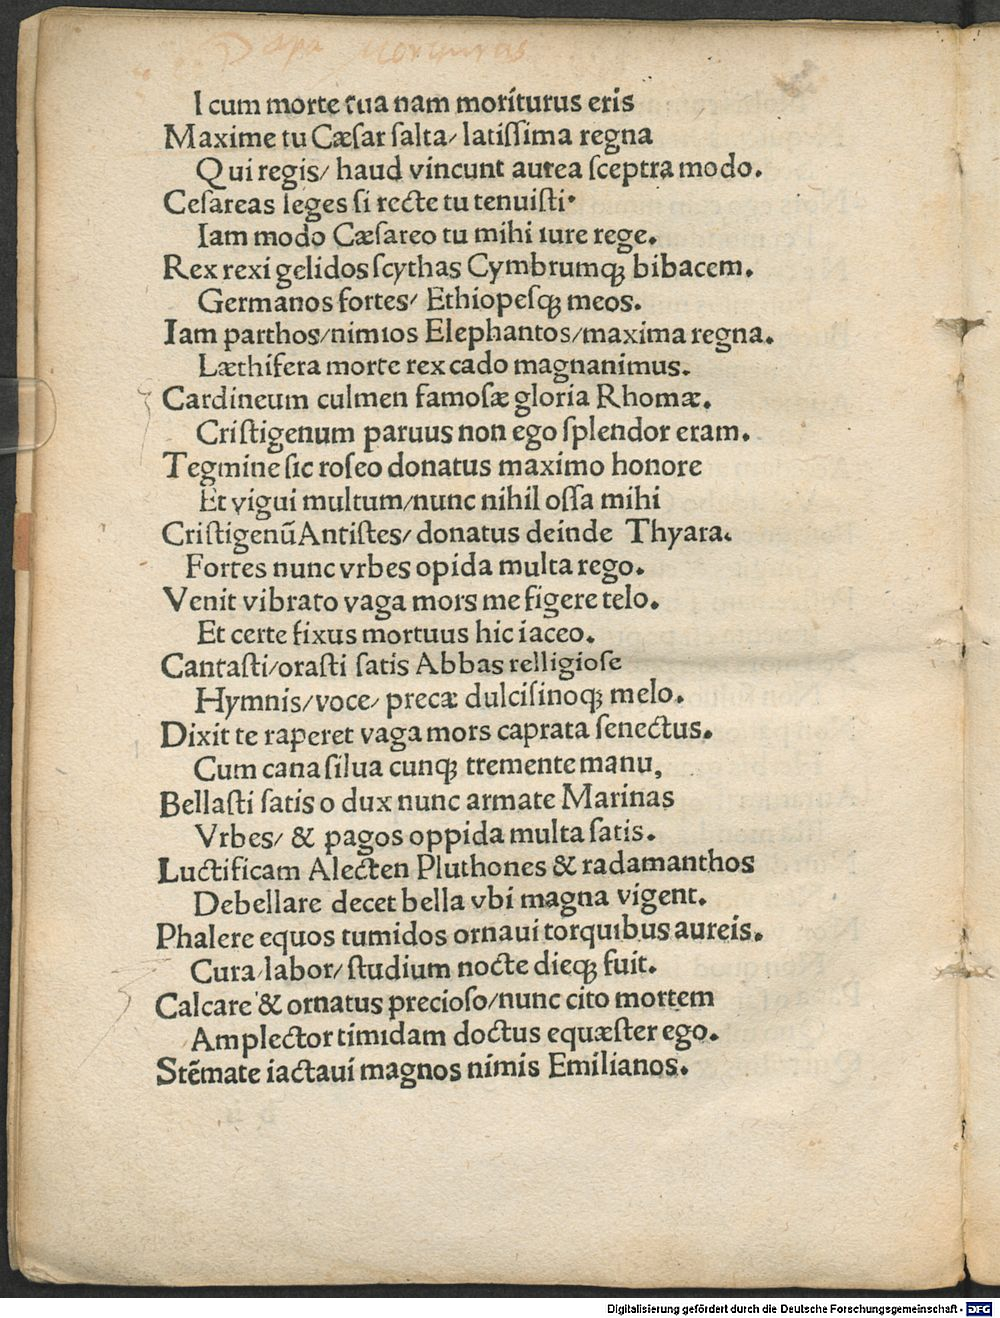 Papa moriturus
I cum morte tua nam moriturus eris
Maxime tu Cæſar ſalta/ latiſſima regna
Qui regis/ haud vincunt aurea ſceptra modo.
Ceſareas leges ſi recte tu tenuiſti·
Iam modo Cæſareo tu mihi iure rege.
Rex rexi gelidos ſcythas Cymbrumqꝫ bibacem.
Germanos fortes/ Ethiopeſqꝫ meos.
Iam parthos/nimios Elephantos/maxima regna.
Læthifera morte rex cado magnanimus.
Cardineum culmen famoſæ gloria Rhomæ.
Criſtigenum paruus non ego ſplendor eram.
Tegmine ſic roſeo donatus maximo honore
Et vigui multum/nunc nihil oſſa mihi
Criſtigenũ Antiſtes/ donatus deinde Thyara.
Fortes nunc vrbes opida multa rego.
Venit vibrato vaga mors me figere telo.
Et certe fixus mortuus hic iaceo.
Cantaſti/oraſti ſatis Abbas relligioſe
Hymnis/voce/ precæ dulciſinoqꝫ melo.
Dixit te raperet vaga mors captata ſenectus.
Cum cana ſilua cunqꝫ tremente manu,
Bellaſti ſatis o dux nunc armate Marinas
Vrbes/ & pagos oppida multa ſatis.
Luctificam Alecten Pluthones & radamanthos
Debellare decet bella vbi magna vigent.
Phalere equos tumidos ornaui torquibus aureis.
Cura/labor/ ſtudium nocte dieqꝫ fuit.
Calcare & ornatus precioſo/nunc cito mortem
Amplector timidam doctus equæſter ego.
Stẽmate iactaui magnos nimis Emilianos.
Digitalisierung gefördert durch die Deutsche Forschungsgemeinschaft - DFG